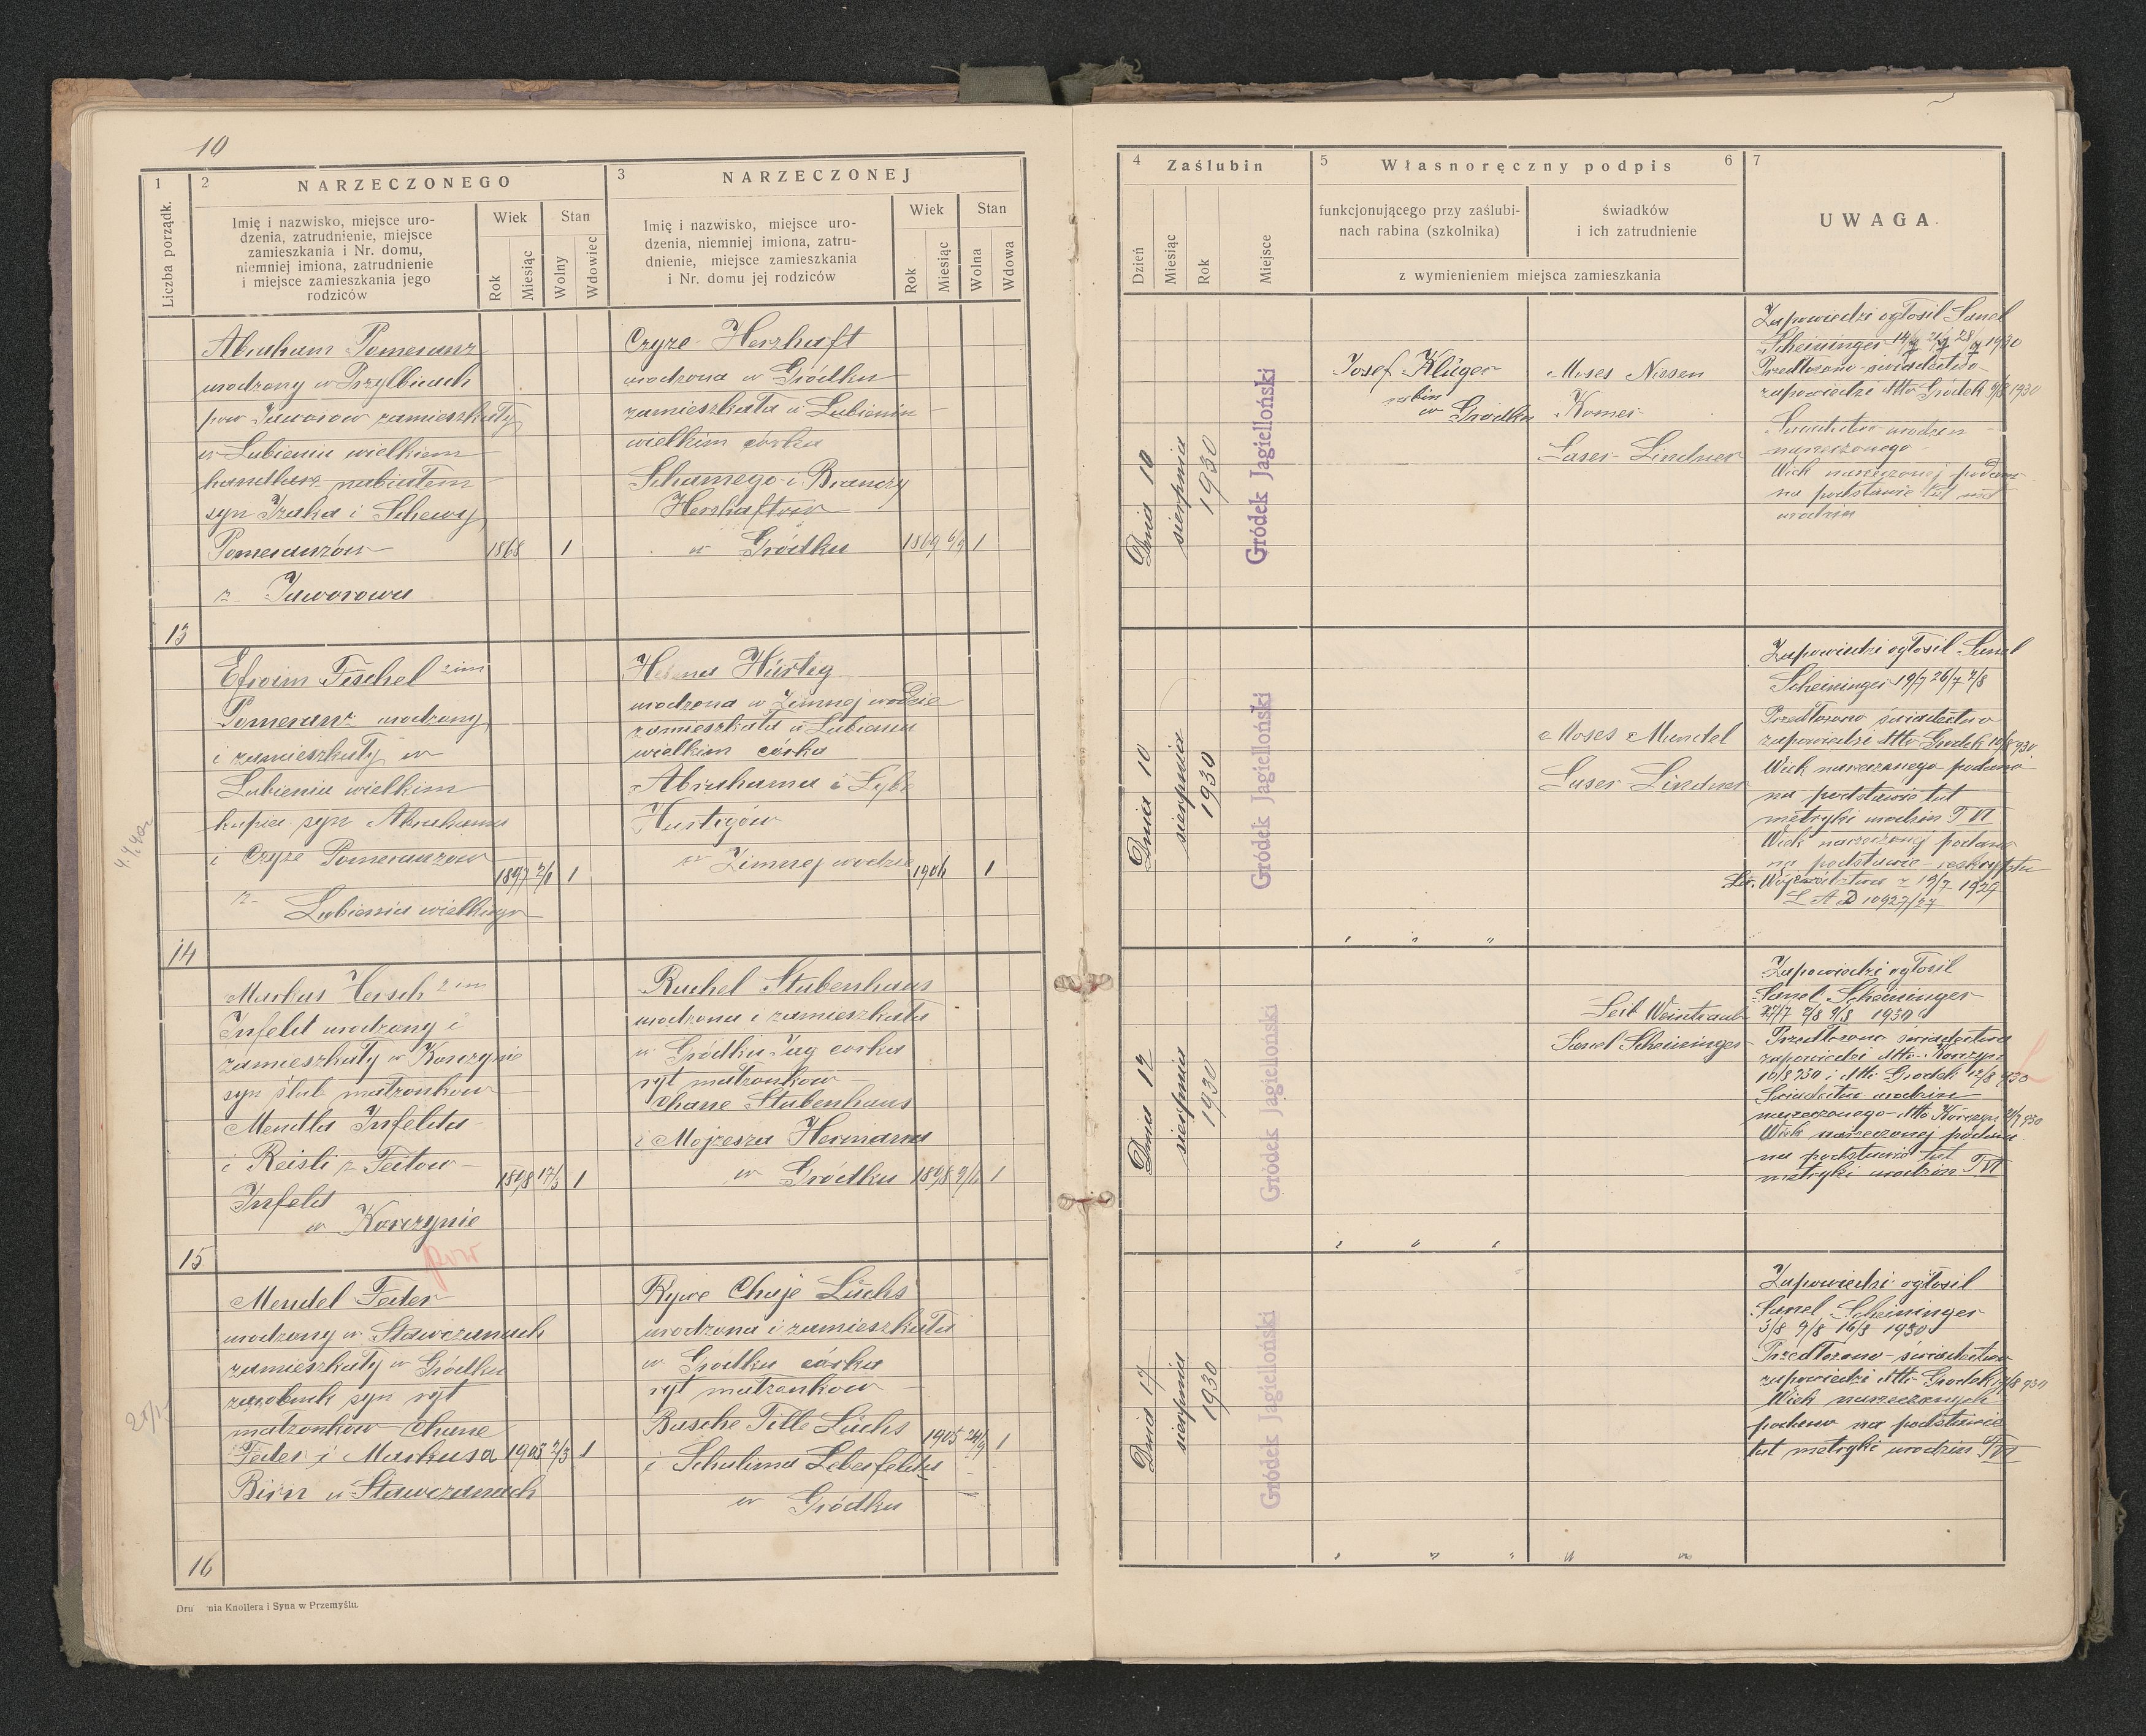 10
1
2
NARZECZONEGO
3
NARZECZONEJ
Liczba porządk.
Imię i nazwisko, miejsce uro-
dzenia, zatrudnienie, miejsce
zamieszkania i Nr. domu,
niemniej imiona, zatrudnienie
i miejsce zamieszkania jego
rodziców
Wiek
Stan
Rok
Miesiąc
Wolny
Wdowiec
Imię i nazwisko, miejsce uro-
dzenia, niemniej imiona, zatru-
dnienie, miejsce zamieszkania
i Nr. domu jej rodziców
Wiek
Stan
Rok
Miesiąc
Wolna
Wdowa
Abraham Pomeranz
urodzony w Przylbicach
pow Jaworów zamieszkały
w Lubieniu wielkiem
handlarz nabiałem
syn Izaka i Schewy
Pomeranzów 1868 1
z Jaworowa
13
Czyze Herzhaft
urodzona w Gródku
zamieszkała w Lubieniu
wielkim córka
Schamego i Branczy
Herzhaftow
w Gródku 1869 6/9 1
Efroim Fischel 2im
Pomeranz urodzony
i zamieszkały w
Lubieniu wielkim
kupiec syn Abrahama
i Czyze Pomeranzow
1897 2/1 1
z Lubienia wielkiego
14
Helena Hürteg
urodzona w Zimnej wodzie
zamieszkała w Lubieniu
wielkim córka
Abrahama i
w Zimnej wodzie 1906 1
Markus Hersch 2im
Infeld urodzony i
zamieszkały w Korczynie
syn ślub małzonkow
Mendla Infelda
i Reisli z Feitow
1898 17/3 1
Infeld
w Korczynie
pow
15
Ruchel Stubenhaus
urodzona i zamieszkała
w Gródku Jag corka
ryt małzonkow
Chane Stubenhaus
i Mojzesza Hermana
w Gródku 1898 9/12 1
Mendel Feder
urodzony w Stawczanach
zamieszkały w Gródku
zarobnik syn ryt
małzonkow Chane
Feder i Markusa 1903 2/3 1
Birn w Stawczanach
16
Rywe Chaje Lüchs
urodzona i zamieszkała
w Gródku córka
ryt małzonkow
Busche Tille Lüchs
1905 24/9 1
i Schulima Leberfelda
w Gródku
Dru nia Knollera i Syna w Przemyślu.
4
Zaślubin
5
Własnoręczny podpis
6
7
UWAGA
Dzień
Miesiąc
Rok
Miejsce
funkcjonującego przy zaślubi-
nach rabina (szkolnika)
świadków
i ich zatrudnienie
z wymienieniem miejsca zamieszkania
Dnia 10
sierpnia
1930
Gródek Jagielloński
Josef Klüger
rabin
w Gródku
Moses Nissen
Komer
Laser Lindner
Zapowiedzi ogłosil Sanel
Scheininger 14/7 21/7 28/7 1930
Przedłozono świadectwo
zapowiedzi dtto Gródek 9/8 1930
Świadectwo urodzen
narzeczonego
Wiek narzeczonej podano
na podstawie tut
urodzin
Dnia 10
sierpnia
1930
Gródek Jagielloński
" " "
Moses Mandel
Laser Lindner
Zapowiedzi ogłosil Sanel
Scheininger 19/7 26/7 2/8
Przedłozono świadectwo
zapowiedzi dtto Grodek 10/8 930
Wiek narzeczonego podano
na podstawie tut
metryki urodzin T VI
Wiek narzeczonej podano
na podstawie reskryptu
Województwa z 13/7 1927
L A D 10927/27
Dnia 12
sierpnia
1930
Gródek Jagielloński
" " "
Leib Weintraub
Sanel Scheininger
Zapowiedzi ogłosil
Sanel Scheininger
27/7 2/8 9/8 1930
Przedłozono świadectwa
zapowiedzi dtto Korczyn
10/8 930 i dtto Grodek 12/8 930
Świadectwo urodzin
narzeczonego dtto Korczyn 21/7 930
Wiek narzeczonej podano
na podstawie tut
metryki urodzin T VI
Dnia 17
sierpnia
1930
Gródek Jagielloński
" " " " "
Zapowiedzi ogłosil
Sanel Scheininger
3/8 9/8 16/8 1930
Przedłozono świadectwo
zapowiedzi dtto Grodek 17/8 930
Wiek narzeczonych
podano na podstawie
tut metryki urodzin T VI